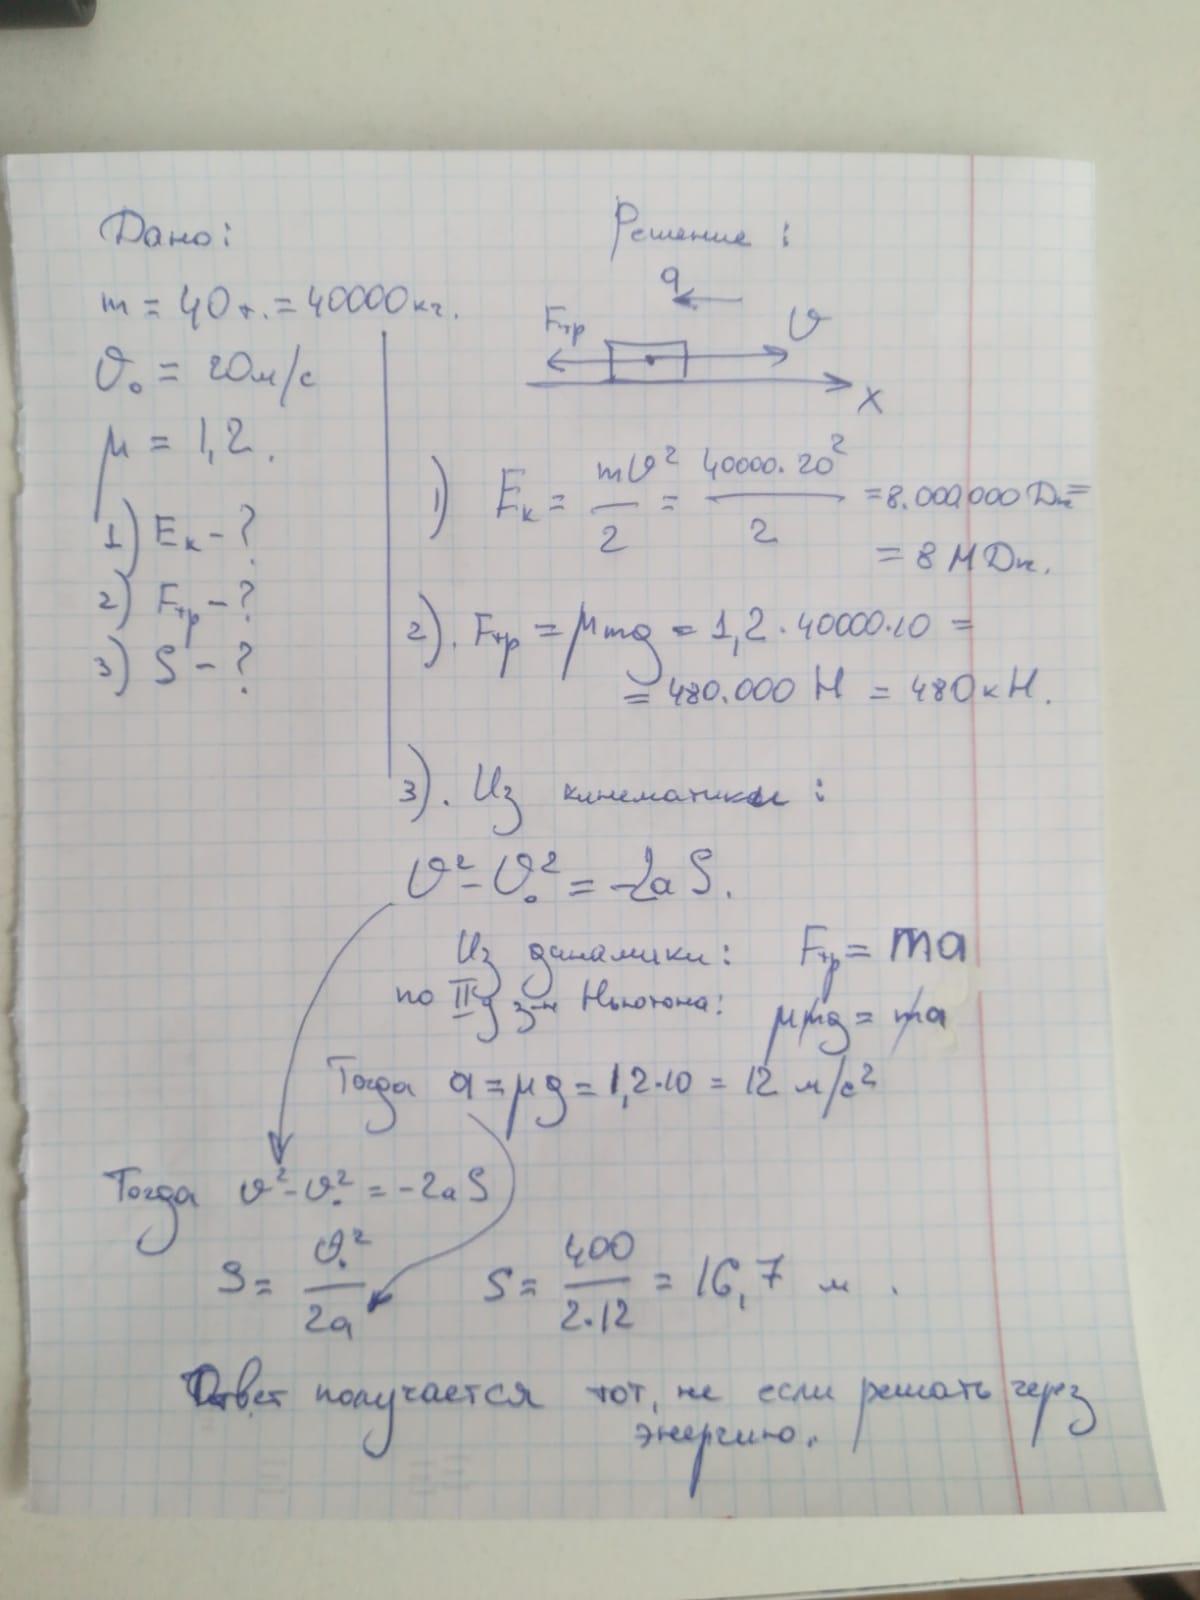 Дано:
m = 40 т. = 40000 кг.
υ₀ = 20 м/с
μ = 1,2.
1) Eк - ?
2) Fтр - ?
3) S - ?
Решение :
a
Fтр υ
x
1) Eк = mυ²/2 = 40000·20²/2 = 8.000000 Дж =
= 8 МДж.
2). Fтр = μmg = 1,2·40000·10 =
= 480.000 Н = 480 кН.
3). Из кинематики :
υ² - υ₀² = -2aS.
Из динамики : Fтр = ma
по II з-н Ньютона: μmg = ma
Тогда a = μg = 1,2·10 = 12 м/с²
Тогда υ² - υ₀² = -2aS
S = υ₀²/2a S = 400/2·12 = 16,7 м .
Ответ получается тот, же если решать через
энергию.